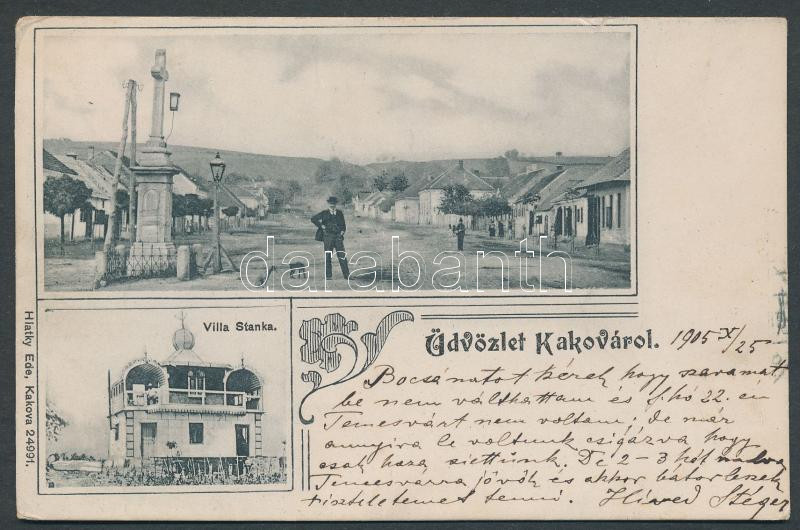 Villa Stanka.
Hlatky Ede, Kakova 24991.
darabanth
Üdvözlet Kakovárol. 1905 X/25
Bocsánatot kérek hogy szavamat
be nem válthattam és f. hó 22. én
Temesvárt nem voltam; de már
annyira le voltunk csigázva hogy
csak haza siettünk. De 2-3 hét mulva
Temesvarra jövök és akkor bátor leszek
tiszteletemet tenni. Hived